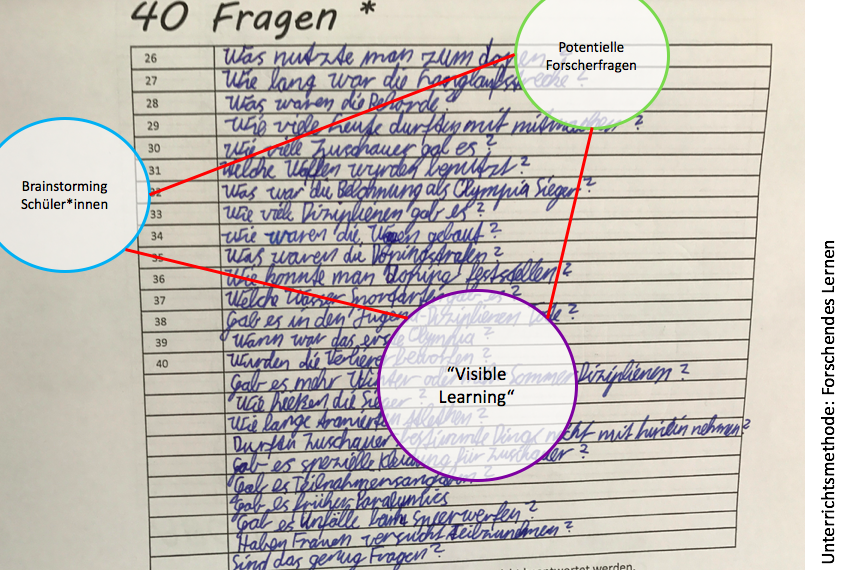 40 Fragen *
Potentielle
Forscherfragen
26 Was nutzte man zum dopen ?
27 Wie lang war die Langlaufstrecke ?
28 Was waren die Rekorde ?
29 Wie viele Leute durften mit mitmachen ?
30 Wie viele Zuschauer gab es ?
31 Welche Waffen wurden benutzt ?
32 Was war die Belohnung als Olympia Sieger ?
33 Wie viele Diziplienen gab es ?
34 Wie waren die Wagen gebaut ?
35 Was waren die Dopingstrafen ?
36 Wie konnte man Doping festsdellen ?
37 Welche Wasser gab es ?
38 Gab es in den Jugend-Diziplienen Tode ?
39 Wann war das erste Olympia ?
40 Wurden die Verlierer ?
Gab es mehr Winter oder Sommer Diziplienen ?
Wie heeßen die Sieger ?
Wie lange Athleten ?
Durften Zuschauer bestimmte Dinge nicht mit hinein nehmen ?
Gab es spezielle Kleidung für Zuschauer ?
Gab es ?
Gab es früher Paralymics
Gab es Unfälle beim Speerwerfen ?
Haben Frauen versucht teilzunehmen ?
Sind das genug Fragen ?
Brainstorming
Schüler*innen
“Visible
Learning“
werden.
Unterrichtsmethode: Forschendes Lernen